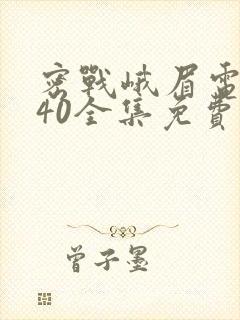 密戰峨眉電
40全集免費
曾子墨